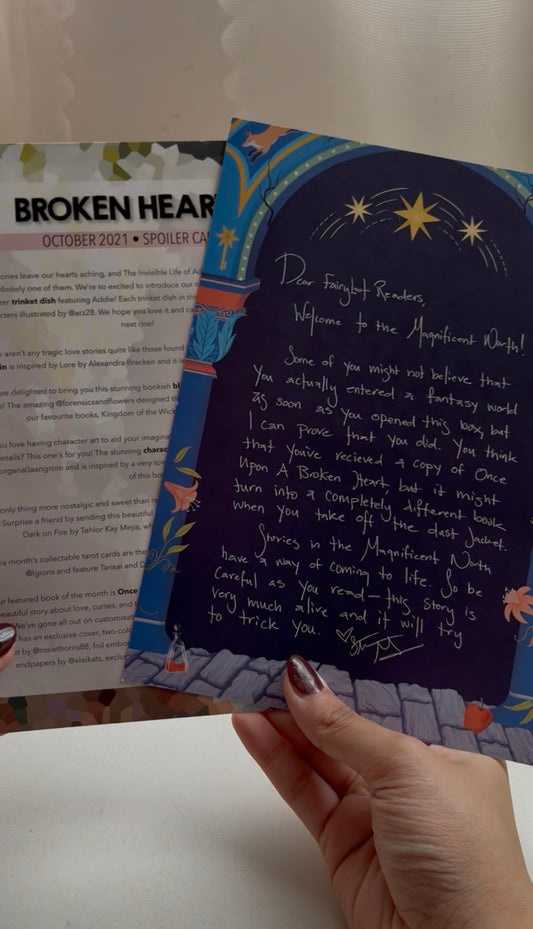 BROKEN HEAR
OCTOBER 2021 • SPOILER CA
ories leave our hearts aching, and The Invisible Life of Ad
finitely one of them. We're so excited to introduce our n
ter trinket dish featuring Addie! Each trinket dish in th
cters illustrated by @arz28. We hope you love it and ca
next one!
e aren't any tragic love stories quite like those found
in is inspired by Lore by Alexandra Bracken and it is
re delighted to bring you this stunning bookish bl
s! The amazing @forensicsandflowers designed th
our favourite books, Kingdom of the Wick
ou love having character art to aid your imagina
etails? This one's for you! The stunning charac
organa0aangrom and is inspired by a very sp
of this bo
only thing more nostalgic and sweet than re
Surprise a friend by sending this beautiful
Dark on Fire by Tehlor Kay Mejia, wh
is month's collectable tarot cards are the
@lgions and feature Tarisai and D
r featured book of the month is Once
eautiful story about love, curses, and t
We've gone all out on customisat
has an exclusive cover, two-col
et by @rosiethorns88, foil embo
endpapers by @aleikats, exclus
Dear Fairyloot Readers,
Welcome to the Magnificent North!
Some of you might not believe that
you actually entered a fantasy world
as soon as you opened this box, but
I can prove that you did. You think
that you've recieved a copy of Once
Upon A Broken Heart, but it might
turn into a completely different book
when you take off the dust jacket.
Stories in the Magnificent North
have a way of coming to life. So be
careful as you read—this story is
very much alive and it will try
to trick you.